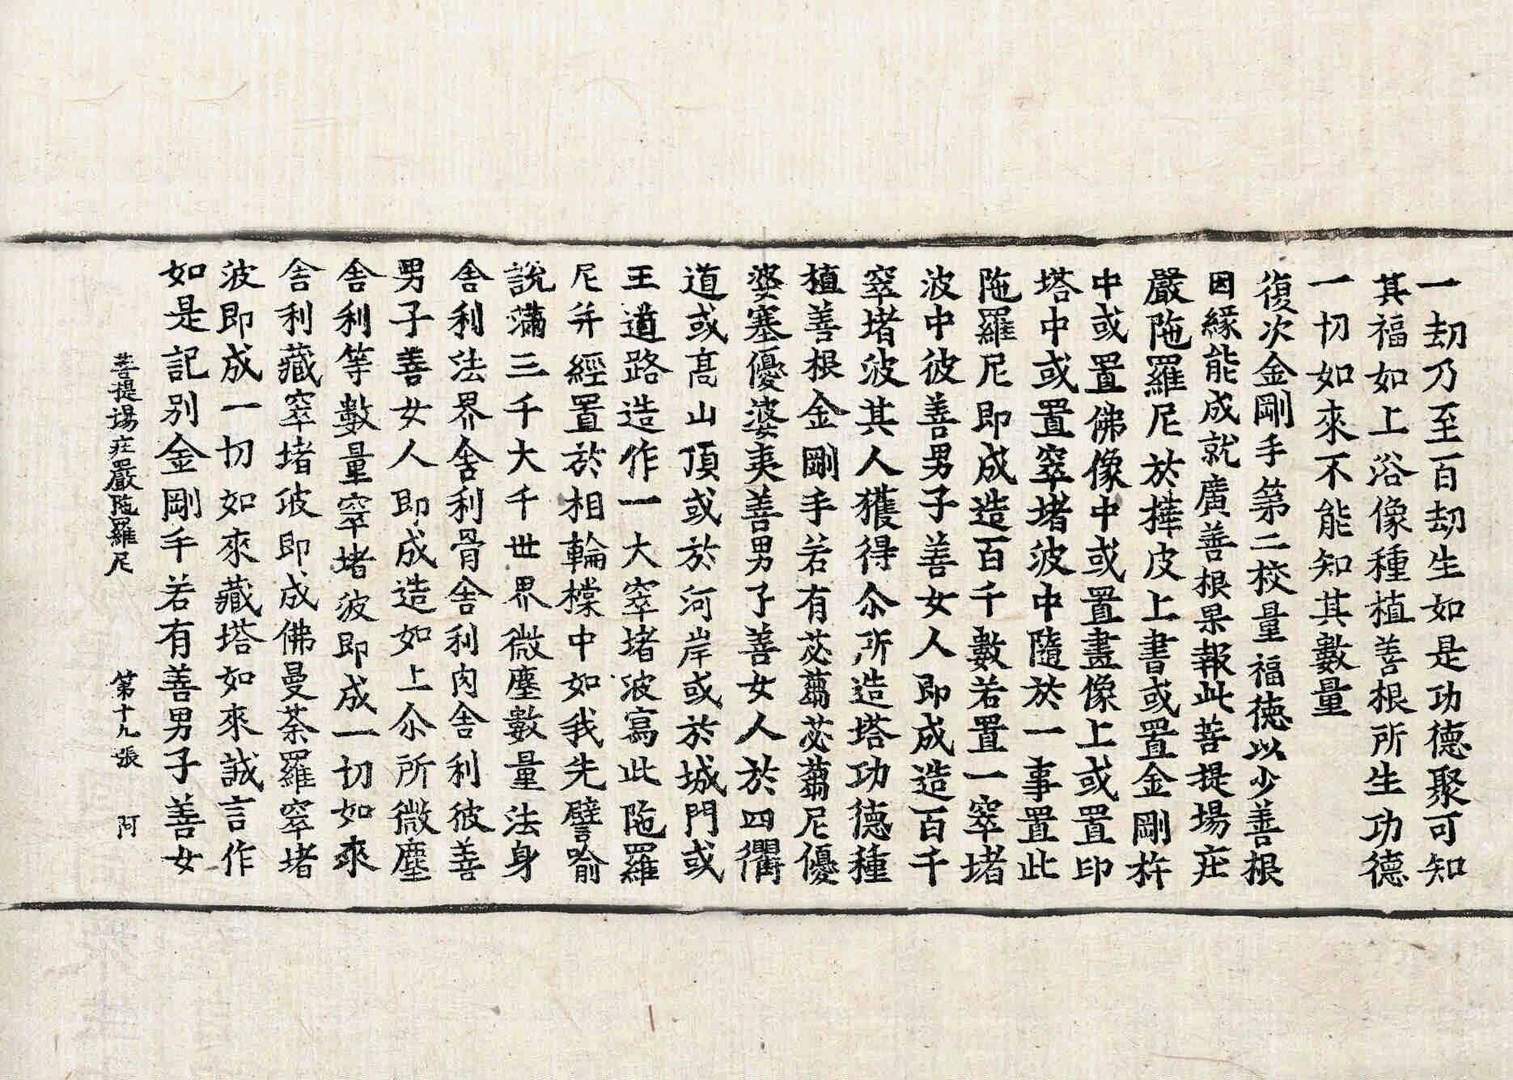 一劫乃至百劫生如是功德聚可知
其福如上浴像種植善根所生功德
一切如來不能知其數量
復次金剛手第二校量福德以少善根
因緣能成就廣善根果報此菩提場庄
嚴陁羅尼於擣皮上書或置金剛杵
中或置佛像中或置畫像上或置印
塔中或置窣堵波中隨於一事置此
陁羅尼即成造百千數若置一窣堵
波中彼善男子善女人即成造百千
窣堵波其人獲得尒所造塔功德種
植善根金剛手若有苾蒭苾蒭尼優
婆塞優婆夷善男子善女人於四衢
道或高山頂或於河岸或於城門或
王道路造作一大窣堵波寫此陁羅
尼并經置於相輪橖中如我先譬喻
說滿三千大千世界微塵數量法身
舍利法界舍利骨舍利肉舍利彼善
男子善女人即成造如上尒所微塵
舍利等數量窣堵波即成一切如來
舍利藏窣堵波即成佛曼荼羅窣堵
波即成一切如來藏塔如來誠言作
如是記別金剛手若有善男子善女
菩提場庄嚴陁羅尼 第十九張 阿